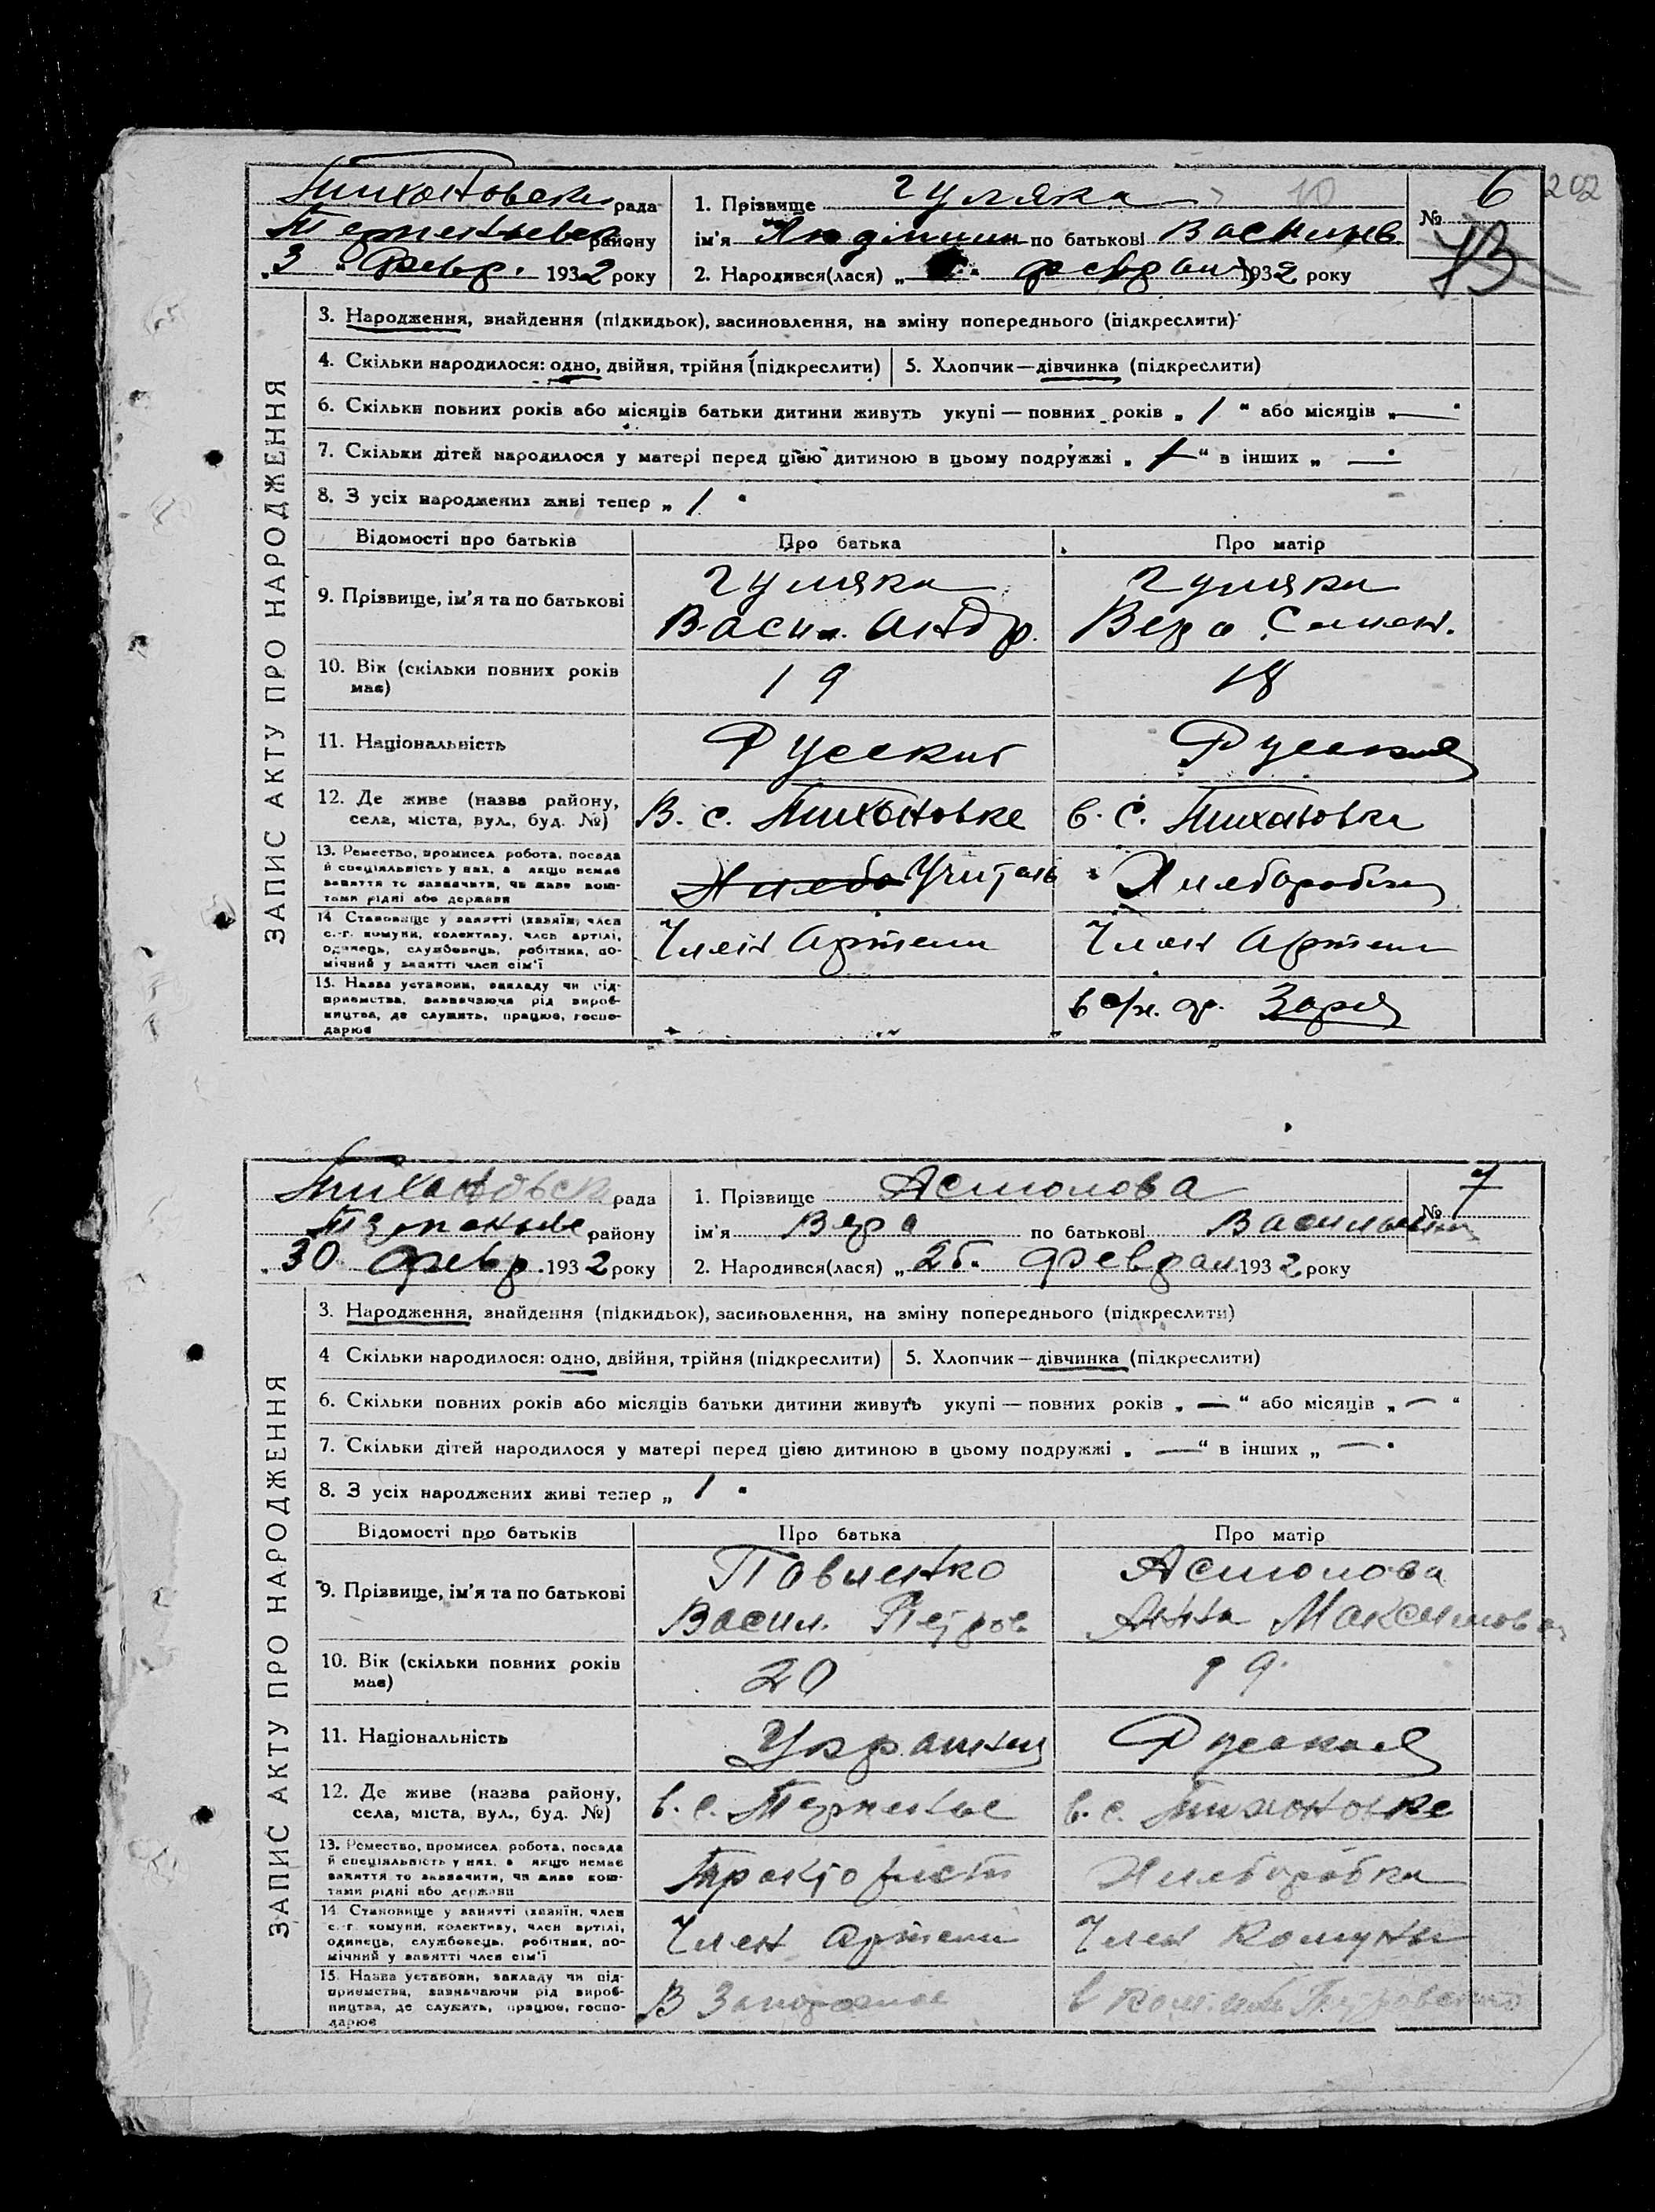 Тихоновск рада
района
„3" Февр. 1932 року
1. Прізвище Гуляка 10
ім'я Людмили по батькові Васильев
2. Народився(лася) „ " феврал 1932 року
№ 6
73
202
ЗАПИС АКТУ ПРО НАРОДЖЕННЯ
3. Народження, знайдення (підкидьок), засиновлення, на зміну попереднього (підкреслити)
4. Скільки народилося: одно, двійня, трійня (підкреслити)
5. Хлопчик—дівчинка (підкреслити)
6. Скільки повних років або місяців батьки дитини живуть укупі — повних років „ 1 " або місяців „ — "
7. Скільки дітей народилося у матері перед цією дитиною в цьому подружжі „ " в інших „ — "
8. З усіх народжених живі тепер „ 1 "
Відомості про батьків
Про батька
Про матір
9. Прізвище, ім'я та по батькові
Гуляка
Васил. Андр.
Гуляка
Вера Семен.
10. Вік (скільки повних років
має)
19
18
11. Національність
Русский
Русская
12. Де живе (назва району,
села, міста, вул., буд. №)
В. с. Тихоновке
в. с. Тихоновке
13. Ремество, промисел, робота, посада
й спеціяльність у них, а якщо немає
заняття то зазначити, чи живе кош-
тами рідні або держави
Учитель
Хлеборобка
14. Становище у занятті (хазяїн, член
с.-г. комуни, колективу, член артілі,
одинець, службовець, робітник, по-
мічний у занятті член сім'ї
Член Артели
Член Артели
15. Назва установи, закладу чи під-
приємства, зазначаючи рід вироб-
ництва, де служить, працює, госпо-
дарює
в с/х. ар. Заря
Тихоновск рада
району
„30 февр. 1932 року
1. Прізвище Асмолова
ім'я Вера по батькові Васильевна
2. Народився(лася) „26. феврал 1932 року
№ 7
ЗАПИС АКТУ ПРО НАРОДЖЕННЯ
3. Народження, знайдення (підкидьок), засиновлення, на зміну попереднього (підкреслити)
4 Скільки народилося: одно, двійня, трійня (підкреслити)
5. Хлопчик—дівчинка (підкреслити)
6. Скільки повних років або місяців батьки дитини живуть укупі — повних років „ — " або місяців „ — "
7. Скільки дітей народилося у матері перед цією дитиною в цьому подружжі „ — " в інших „ — "
8. З усіх народжених живі тепер „ 1 "
Відомості про батьків
Про батька
Про матір
9. Прізвище, ім'я та по батькові
Павленко
Васил. Петров
Асмолова
Анна Максимовна
10. Вік (скільки повних років
має)
20
19.
11. Національність
Украинец
Русская
12. Де живе (назва району,
села, міста, вул., буд. №)
в. с. Терпенье
в. с. Тихоновке
13. Ремество, промисел, робота, посада
й спеціяльність у них, а якщо немає
заняття то зазначити, чи живе кош-
тами рідні або держави
Тракторист
Хлеборобка
14. Становище у занятті (хазяїн, член
с.-г. комуни, колективу, член артілі,
одинець, службовець, робітник, по-
мічний у занятті член сім'ї
Член Артели
Член Комуны
15. Назва установи, закладу чи під-
приємства, зазначаючи рід вироб-
ництва, де служить, працює, госпо-
дарює
В Запорожье
в Ком. им Петровского